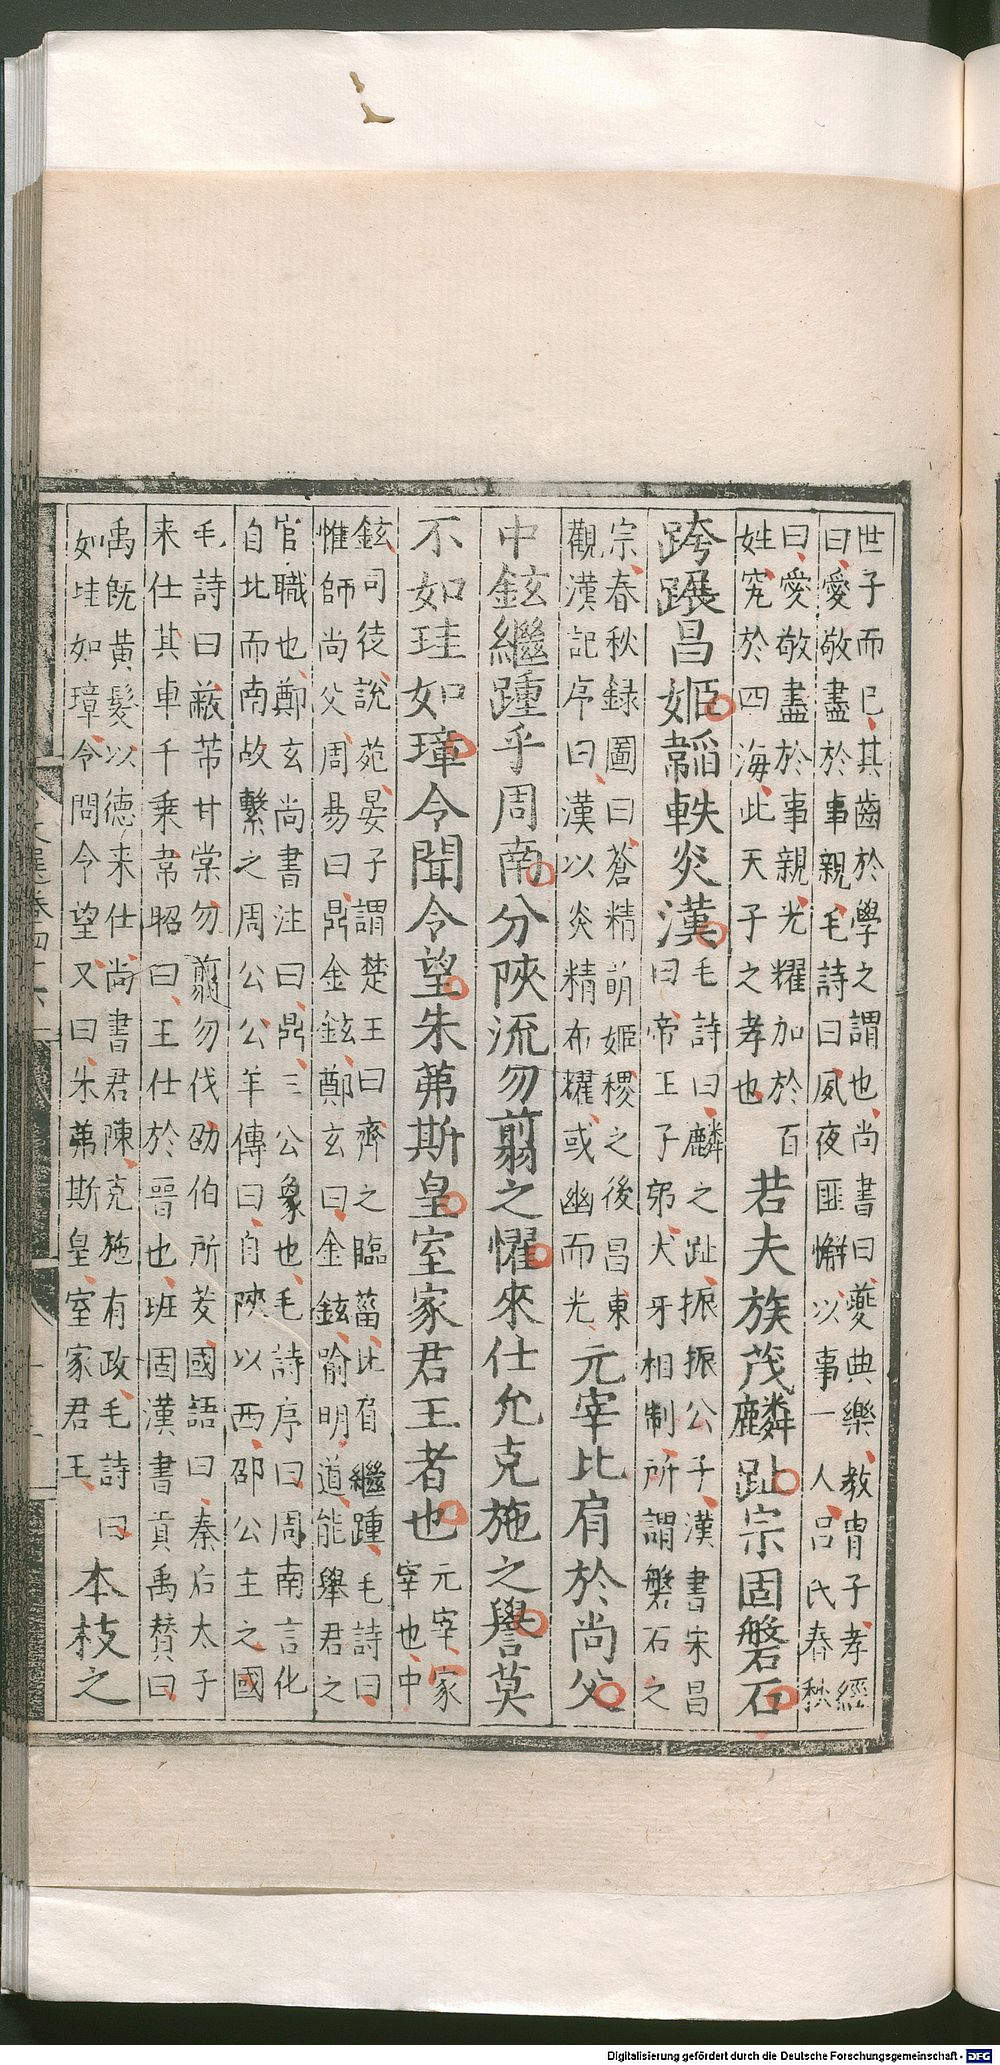 世子而已其齒於學之謂也尚書曰夔典樂教胄子孝經
曰愛敬盡於事親毛詩曰夙夜匪懈以事一人呂氏春秋
曰愛敬盡於事親光耀加於百
姓究於四海此天子之孝也
若夫族茂麟趾宗固磐石
跨躡昌姬韜軼炎漢
毛詩曰麟之趾振振公子漢書宋昌
曰帝王子弟犬牙相制所謂磐石之
宗春秋録圖曰蒼精萌姬稷之後昌東
觀漢記序曰漢以炎精布耀或幽而光
元宰比肩於尚父
中鉉繼踵乎周南分陝流勿翦之懽來仕允克施之譽莫
不如珪如璋令聞令望朱茀斯皇室家君王者也
元宰冢
宰也中
鉉司徒說苑晏子謂楚王曰齊之臨菑比肩繼踵毛詩曰
惟師尚父周易曰鼎金鉉鄭玄曰金鉉喻明道能舉君之
官職也鄭玄尚書注曰鼎三公象也毛詩序曰周南言化
自北而南故繫之周公公羊傳曰自陝以西邵公主之國
毛詩曰蔽芾甘棠勿翦勿伐劭伯所茇國語曰秦后太子
来仕其車千乗韋昭曰王仕於晉也班固漢書貢禹賛曰
禹既黄髮以德来仕尚書君陳克施有政毛詩曰
如珪如璋令問令望又曰朱茀斯皇室家君王
本枝之
Digitalisierung gefördert durch die Deutsche Forschungsgemeinschaft - DFG